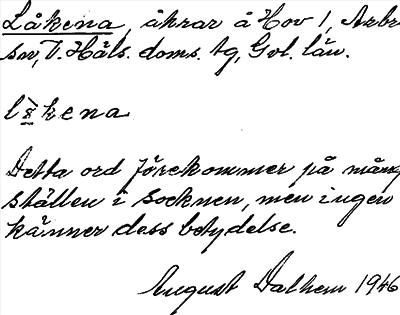 Låkena, åkrar å Hov 1, Arbr
sn, V. Häls. doms. tg, Gvl. län.
là̱kena
Detta ord förekommer på mång
ställen i socknen, men ingen
känner dess betydelse.
August Dalhem 1946